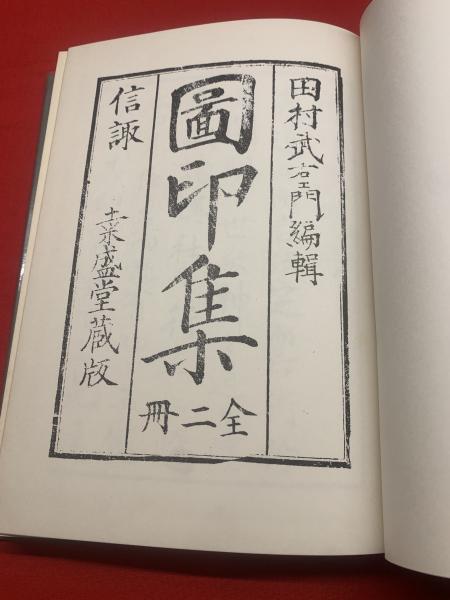 田村武右エ門編輯
圖印集
全二冊
信諏
盛堂蔵版